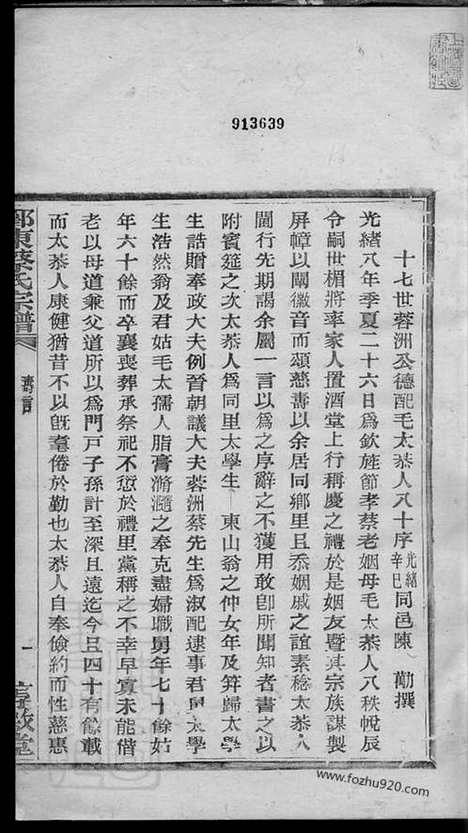 913639
十七世蓉洲公德配毛太恭人八十序光緒辛巳同邑陳勱撰
光緒八年季夏二十六日爲欽旌節孝蔡老姻母毛太恭人八秩帨辰
令嗣世楣將率家人置酒堂上行稱慶之禮於是姻友暨其宗族謀製
屏幛以闡徽音而頌慈壽以余居同鄉里且忝姻戚之誼素稔太恭人
閫行先期謁余屬一言以爲之序辭之不獲用敢卽所聞知者書之以
附賓筵之次太恭人爲同里太學生 東山翁之仲女年及笄歸太學
生誥贈奉政大夫例晉朝議大夫蓉洲蔡先生爲淑配逮事君舅太學
生浩然翁及君姑毛太孺人脂膏滫瀡之奉克盡婦職舅年七十餘姑
年六十餘而卒襄喪葬承祭祀不愆於禮里黨稱之不幸早寡未能偕
老以母道兼父道所以爲門戸子孫計至深且遠迄今且四十有餘載
而太恭人康健猶昔不以旣耄倦於勤也太恭人自奉儉約而性慈惠
鄮東蔡氏宗譜
壽言
一
www.fozhu920.com